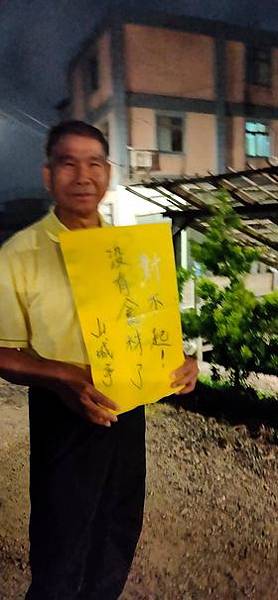 對不起!
沒有食材了
山城